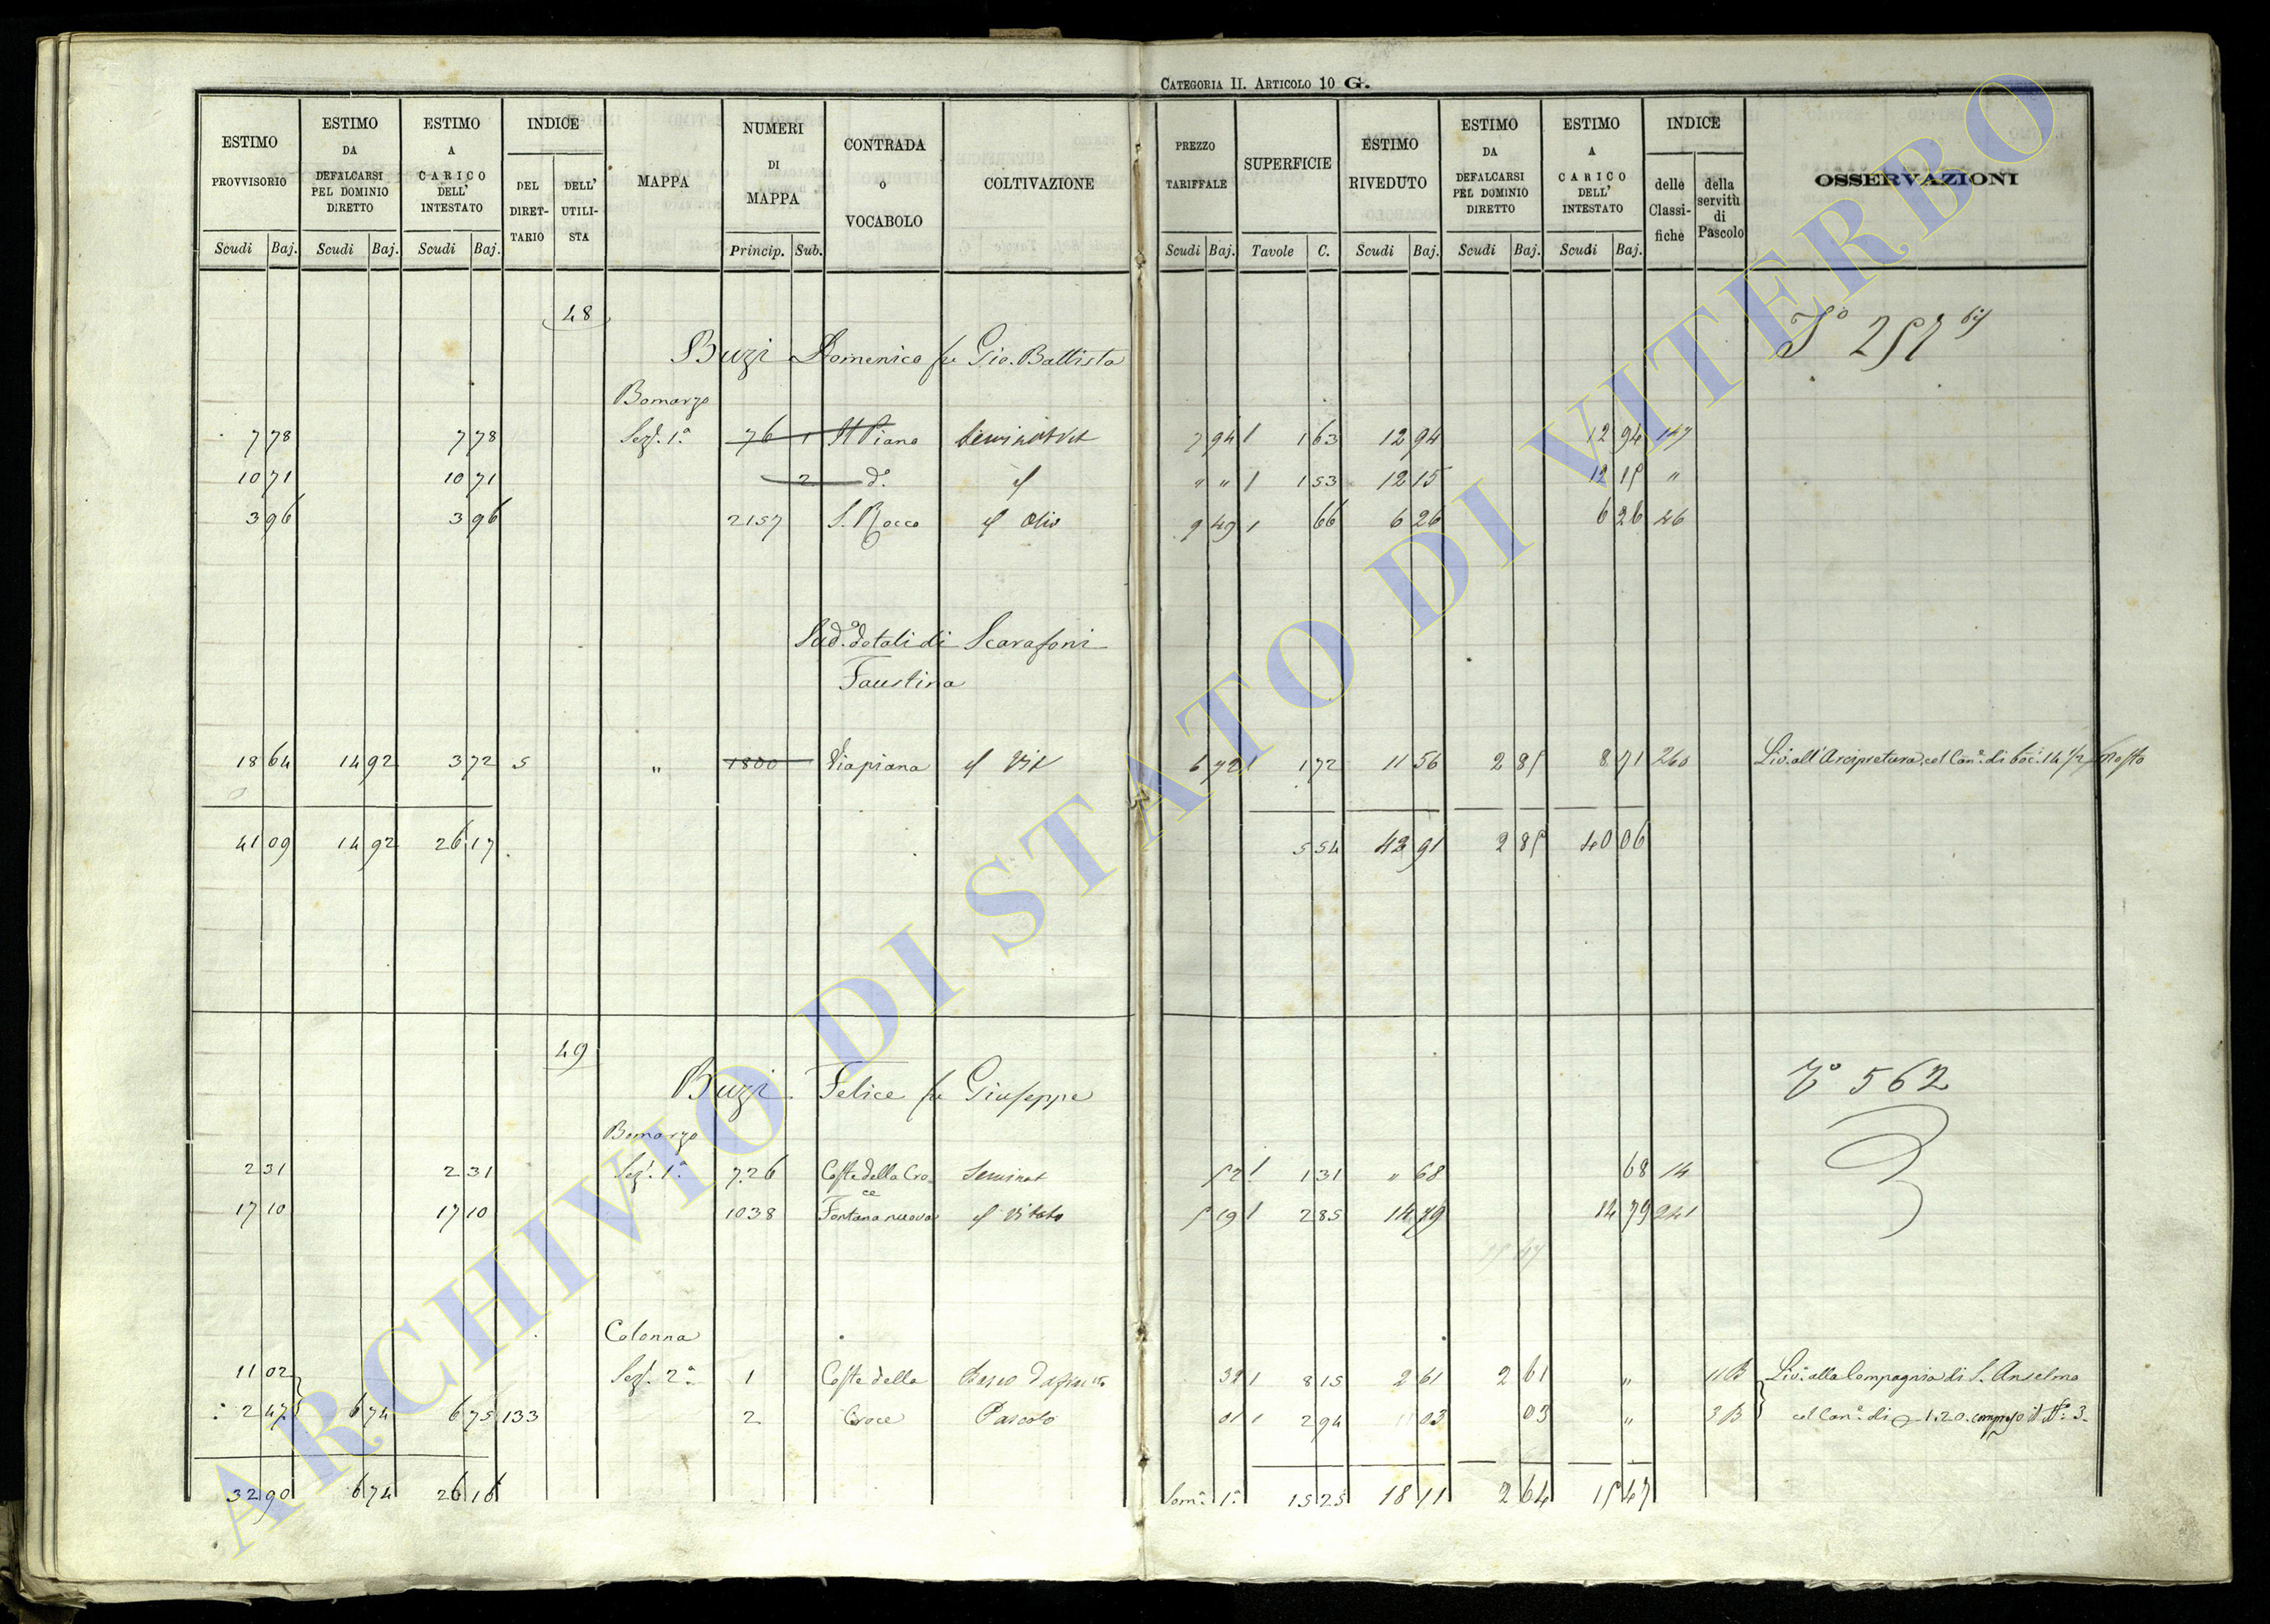 CATEGORIA II. ARTICOLO 10 G.
ESTIMO PROVVISORIO Scudi Baj. ESTIMO DA DEFALCARSI PEL DOMINIO DIRETTO Scudi Baj. ESTIMO A CARICO DELL' INTESTATO Scudi Baj. INDICE DEL DIRET- TARIO DELL' UTILI- STA MAPPA NUMERI DI MAPPA Princip. Sub. CONTRADA O VOCABOLO COLTIVAZIONE PREZZO TARIFFALE Scudi Baj. SUPERFICIE Tavole C. ESTIMO RIVEDUTO Scudi Baj. ESTIMO DA DEFALCARSI PEL DOMINIO DIRETTO Scudi Baj. ESTIMO A CARICO DELL' INTESTATO Scudi Baj. INDICE delle Classi- fiche della servitù di Pascolo OSSERVAZIONI
48
Buzi Domenico fu Gio. Battista 257
Bomarzo
7 78 7 78 Sez. 1ª 76 1 Piano 7 94 1 1 63 12 94 12 94 147
10 71 10 71 2 dº " " 1 1 53 12 15 12 15 "
3 96 3 96 2157 S. Rocco Oliv 9 49 1 66 6 26 6 26 46
Sudº dotali di Scarafoni
Faustina
18 64 14 92 3 72 5 " 1800 Viapiana Vit 6 72 1 1 72 11 56 2 85 8 71 260 Liv. all'Arcipretura col Canº di boc. 14 1/2 Mosto
41 09 14 92 26 17 5 54 42 91 2 85 40 06
49
Buzi Felice fu Giuseppe 562
Bomarzo
2 31 2 31 Sez. 1ª 726 Coste della Cro- ce Seminat 52 1 1 31 " 68 68 14
17 10 17 10 1038 Fontana nuova Vitato 5 19 1 2 85 14 79 14 79 241
Colonna
11 02 Sez. 2ª 1 Coste della 32 1 8 15 2 61 2 61 " 11 B Liv. alla Compagnia di S. Anselmo
2 47 6 74 6 75 133 2 Croce Pascolo 01 1 2 94 03 03 " 3 B col Canº di 1.20. compreso il Nº 3
32 90 6 74 26 16 Somª 1ª 15 25 18 11 2 64 15 47
ARCHIVIO DI STATO DI VITERBO